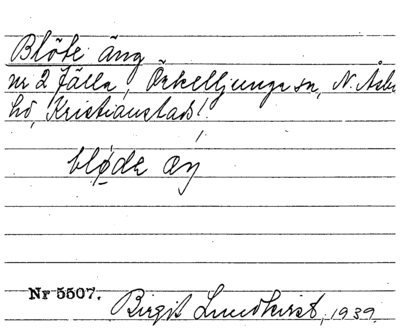 Blöte äng
nr 2 Fälla, Örkelljunga sn, N. Åsbo
hd, Kristianstads l.
blø̀de æŋ
Nr 5507.
Birgit Lundkvist, 1939.